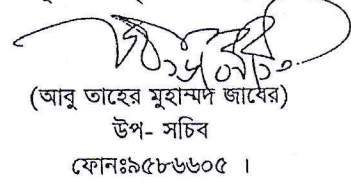 (আবু তাহের মুহাম্মদ জাবের)
উপ- সচিব
ফোনঃ৯৫৮৬৬০৫ ।